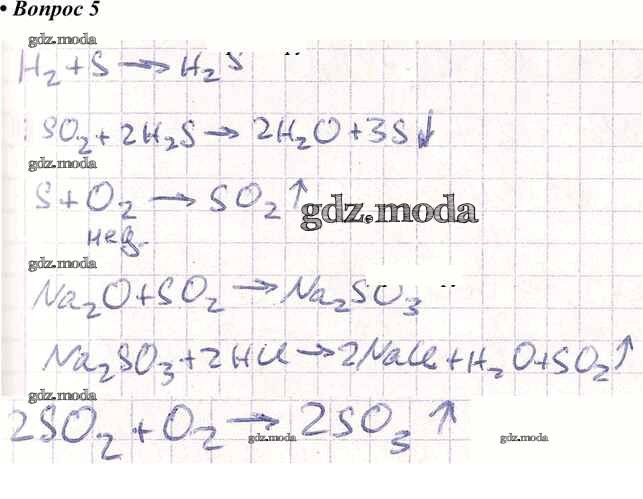 • Вопрос 5
gdz.moda
H₂ + S → H₂S
SO₂ + 2H₂S → 2H₂O + 3S↓
gdz.moda
S + O₂ → SO₂↑
gdz.moda
нед.
gdz.moda
Na₂O + SO₂ → Na₂SO₃
Na₂SO₃ + 2HCl → 2NaCl + H₂O + SO₂↑
gdz.moda
2SO₂ + O₂ → 2SO₃↑
gdz.moda gdz.moda